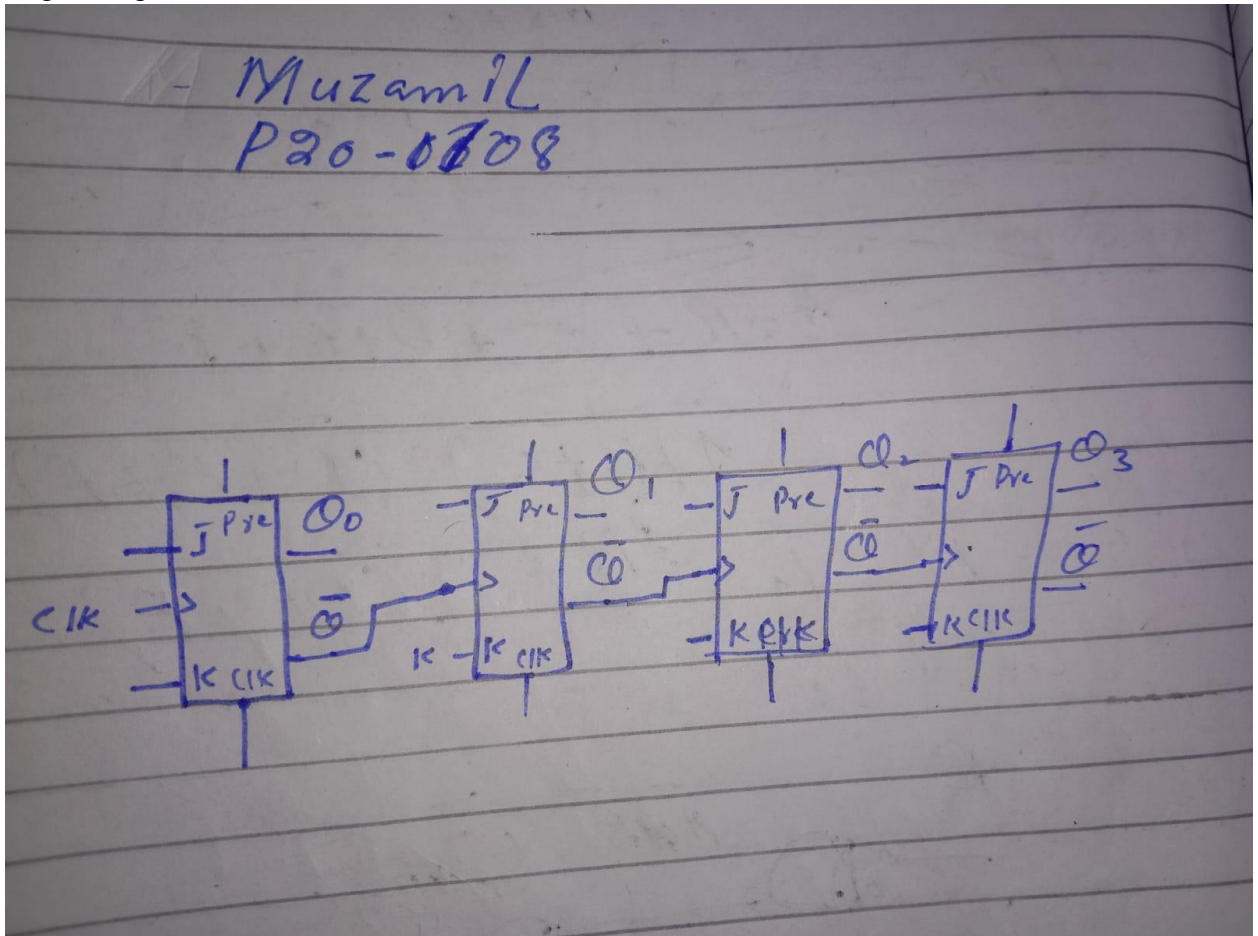 - Muzamil
P20-0108
J Pre Q0
CLK
Q̄
K CLK
J Pre Q1
Q̄
K K CLK
J Pre Q2
Q̄
K
J Pre Q3
Q̄
K CLK